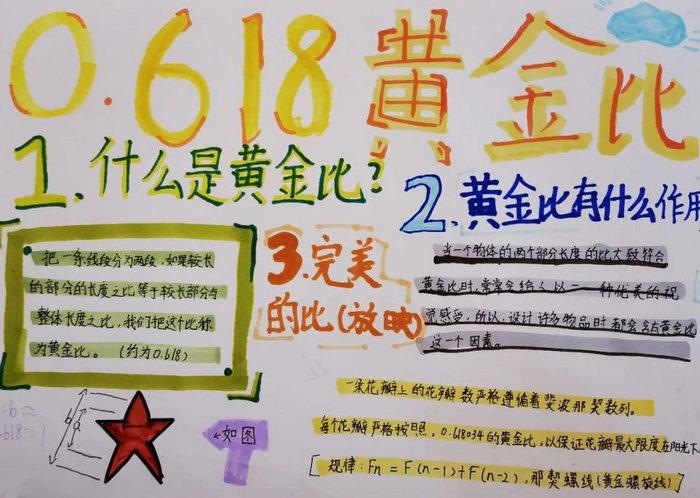 0.618黄金比
1.什么是黄金比?
2.黄金比有什么作用
把一条线段分为两段,如果较长
的部分的长度之比等于较长部分与
整体长度之比,我们把这个比称
为黄金比。(约为0.618)
3.完美
的比(放映)
当一个物体的两个部分长度的比大致符合
黄金比时,常常会给人以一种优美的视
觉感受,所以,设计许多物品时都会含与黄金比
这一个因素。
如图
一朵花瓣上的花瓣数严格遵循着斐波那契数列。
每个花瓣严格按照,0.618034的黄金比,以保证花瓣最大限度在阳光下
[规律:Fn=F(n-1)+F(n-2),那契螺线(黄金螺旋线)]